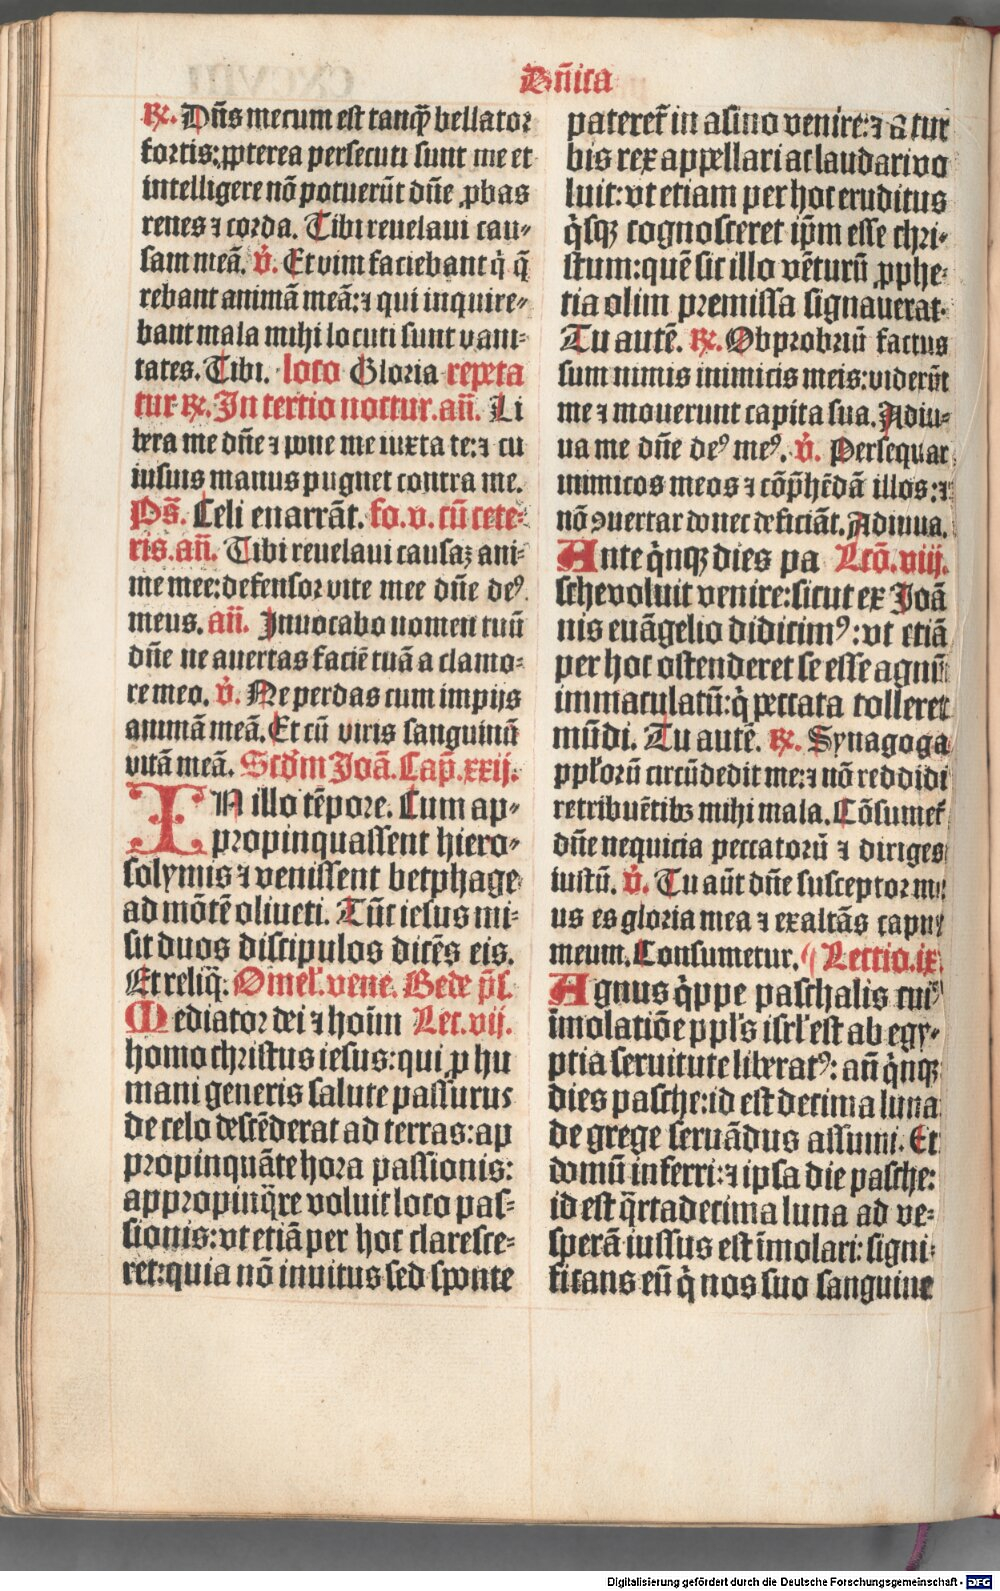 Dñica
℟. Dñs mecum est tanq̃ bellator
fortis: ꝓpterea persecuti sunt me et
intelligere nõ potuerũt dñe ꝓbas
renes ⁊ corda. Tibi reuelaui cau-
sam meã. ℣. Et vim faciebant q̇ q̃
rebant animã meã: ⁊ qui inquire-
bant mala mihi locuti sunt vani-
tates. Tibi. loco Gloria repeta
tur ℟. In tertio noctur. añ. Li
bera me dñe ⁊ pone me iuxta te: ⁊ cu
iusuis manus pugnet contra me.
Ps̃. Celi enarrãt. fo. v. cũ cete-
ris. añ. Tibi reuelaui causaꝫ ani-
me mee: defensor vite mee dñe deꝰ
meus. añ. Inuocabo nomen tuũ
dñe ne auertas faciẽ tuã a clamo-
re meo. ℣. Ne perdas cum impijs
animã meã. Et cũ viris sanguinũ
vitã meã. Scd̃m Joã. Cap̃. xxij.
IN illo tẽpore. Cum ap-
propinquassent hiero-
solymis ⁊ venissent betphage
ad mõtẽ oliueti. Tũc iesus mi-
sit duos discipulos dicẽs eis.
Et reliq̃: Omel̃. vene. Bede p̃s.
Mediator dei ⁊ hoĩm Lec. vij.
homo christus iesus: qui ꝓ hu
mani generis salute passurus
de celo descẽderat ad terras: ap
propinquãte hora passionis:
appropinq̃re voluit loco pas-
sionis: vt etiã per hoc claresce-
ret: quia nõ inuitus sed sponte
pateret᷑ in asino venire: ⁊ a tur
bis rex appellari ac laudari vo
luit: vt etiam per hoc eruditus
q̇sqꝫ cognosceret ip̃m esse chri-
stum: quẽ sic illo vẽturũ ꝓphe-
tia olim premissa signauerat.
Tu autẽ. ℟. Obprobriũ factus
sum nimis inimicis meis: viderũt
me ⁊ mouerunt capita sua. Adiu-
ua me dñe deꝰ meꝰ. ℣. Persequar
inimicos meos ⁊ cõp̃hẽdã illos: ⁊
nõ ꝯuertar donec deficiãt. Adiuua.
Ante q̇nqꝫ dies pa Lcõ. viij.
sche voluit venire: sicut ex Joã
nis euãgelio didicimꝰ: vt etiã
per hoc ostenderet se esse agnũ
immaculatũ: q̇ peccata tolleret
mũdi. Tu autẽ. ℟. Synagoga
ppl̃orũ circũdedit me: ⁊ nõ reddidi
retribuẽtibꝫ mihi mala. Cõsumet᷑
dñe nequicia peccatorũ ⁊ diriges
iustũ. ℣. Tu aũt dñe susceptor me
us es gloria mea ⁊ exaltãs caput
meum. Consumetur. Lectio. ix.
Agnus q̇ppe paschalis cuiꝰ
ĩmolatiõe ppl̃s isrl̃ est ab egy-
ptia seruitute liberatꝰ: añ q̇nqꝫ
dies pasche: id est decima luna
de grege seruãdus assumi. Et
domũ inferri: ⁊ ipsa die pasche:
id est q̃rtadecima luna ad ve-
sperã iussus est ĩmolari: signi-
ficans eũ q̇ nos suo sanguine
Digitalisierung gefördert durch die Deutsche Forschungsgemeinschaft - DFG